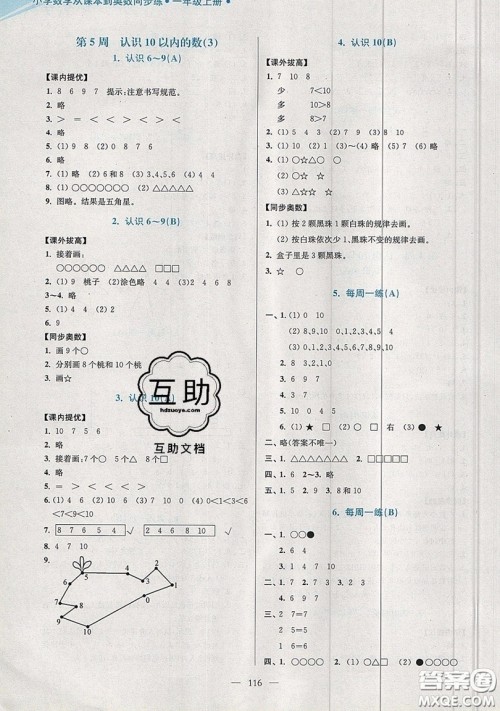 小学数学从课本到奥数同步练·一年级上册·
第5周 认识10以内的数(3)
1. 认识6~9(A)
【课内提优】
1. 8 6 9 7 提示:注意书写规范。
2. 略
3. > = < < < < > <
5. (1)9 8 (2)7 5 4 2
7. (1)略 (2)6和8 (3)3,4,5,6 (4)4
8. (1)○○○○○○○ (2)△△△△△△△△△
9. 图略。结果是五角星。
2. 认识6~9(B)
【课外拔高】
1. 接着画:
○○○○○○ △△△△ □□□
2. (1)0 9 桃子 (2)涂色略 4 4
3~4. 略
6. 9
【同步奥数】
1. 画9个○
2. 分别画8个桃和10个桃
3. 画☆
3. 认识10(A)
【课内提优】
1. 10 7 5 6
2. 略
3. 接着画:7个○ △△△△△ □□□
4. 略
6. (1)4 6 10 (2)1 3 4 6 7 9 (3)> < > =
< 7 9 6
7. 8 7 6 5 4 √ 2 4 6 8 10 √
8.
6 5 4 3 2 1
7 8 9 10 0
4. 认识10(B)
【课外拔高】
1. 7 10 8
少 7<10
多 10>8
多 10>7
2. (1)4 (2)1 (3)~(4)略 (5)7 9 (6)8 10
3. (1)○☆△○☆△
(2)□□☆☆☆
【同步奥数】
1. (1)按2颗黑珠1颗白珠的规律去画。
(2)按白珠依次少1,黑珠不变的规律去画。
2. 盒子里是3颗黑珠。
3. ☆ ○
5. 每周一练(A)
一、1. (1)0 10
(2)9 8 0,1,2,3,4,5
2. 9 7
3. 9 7
4. 8
5. 9 10
6. (1)★ □ (2)○ □ 右 (3)● ●
二、略(答案不唯一)
三、1. △△△△△△ 2. □□□□
四、1. 6 2~3. 略
五、1. 5 2. 略 3. 9 8
6. 每周一练(B)
一、1. ○○●
2. 1 7 10 9
4. 8
二、1. 0 1 2 4 6 7 8 9
2. 10 9 8 7 4 3 1
3. 4 6 8 10
4. 7 5 3 1
三、2 7=7
2 6=6
1 5=5
四、1. (1)○△△□ (2)○○●●●○○○○
· 116 ·
互助
hdzuoye.com
互助文档
答案圈
MXQE.COM